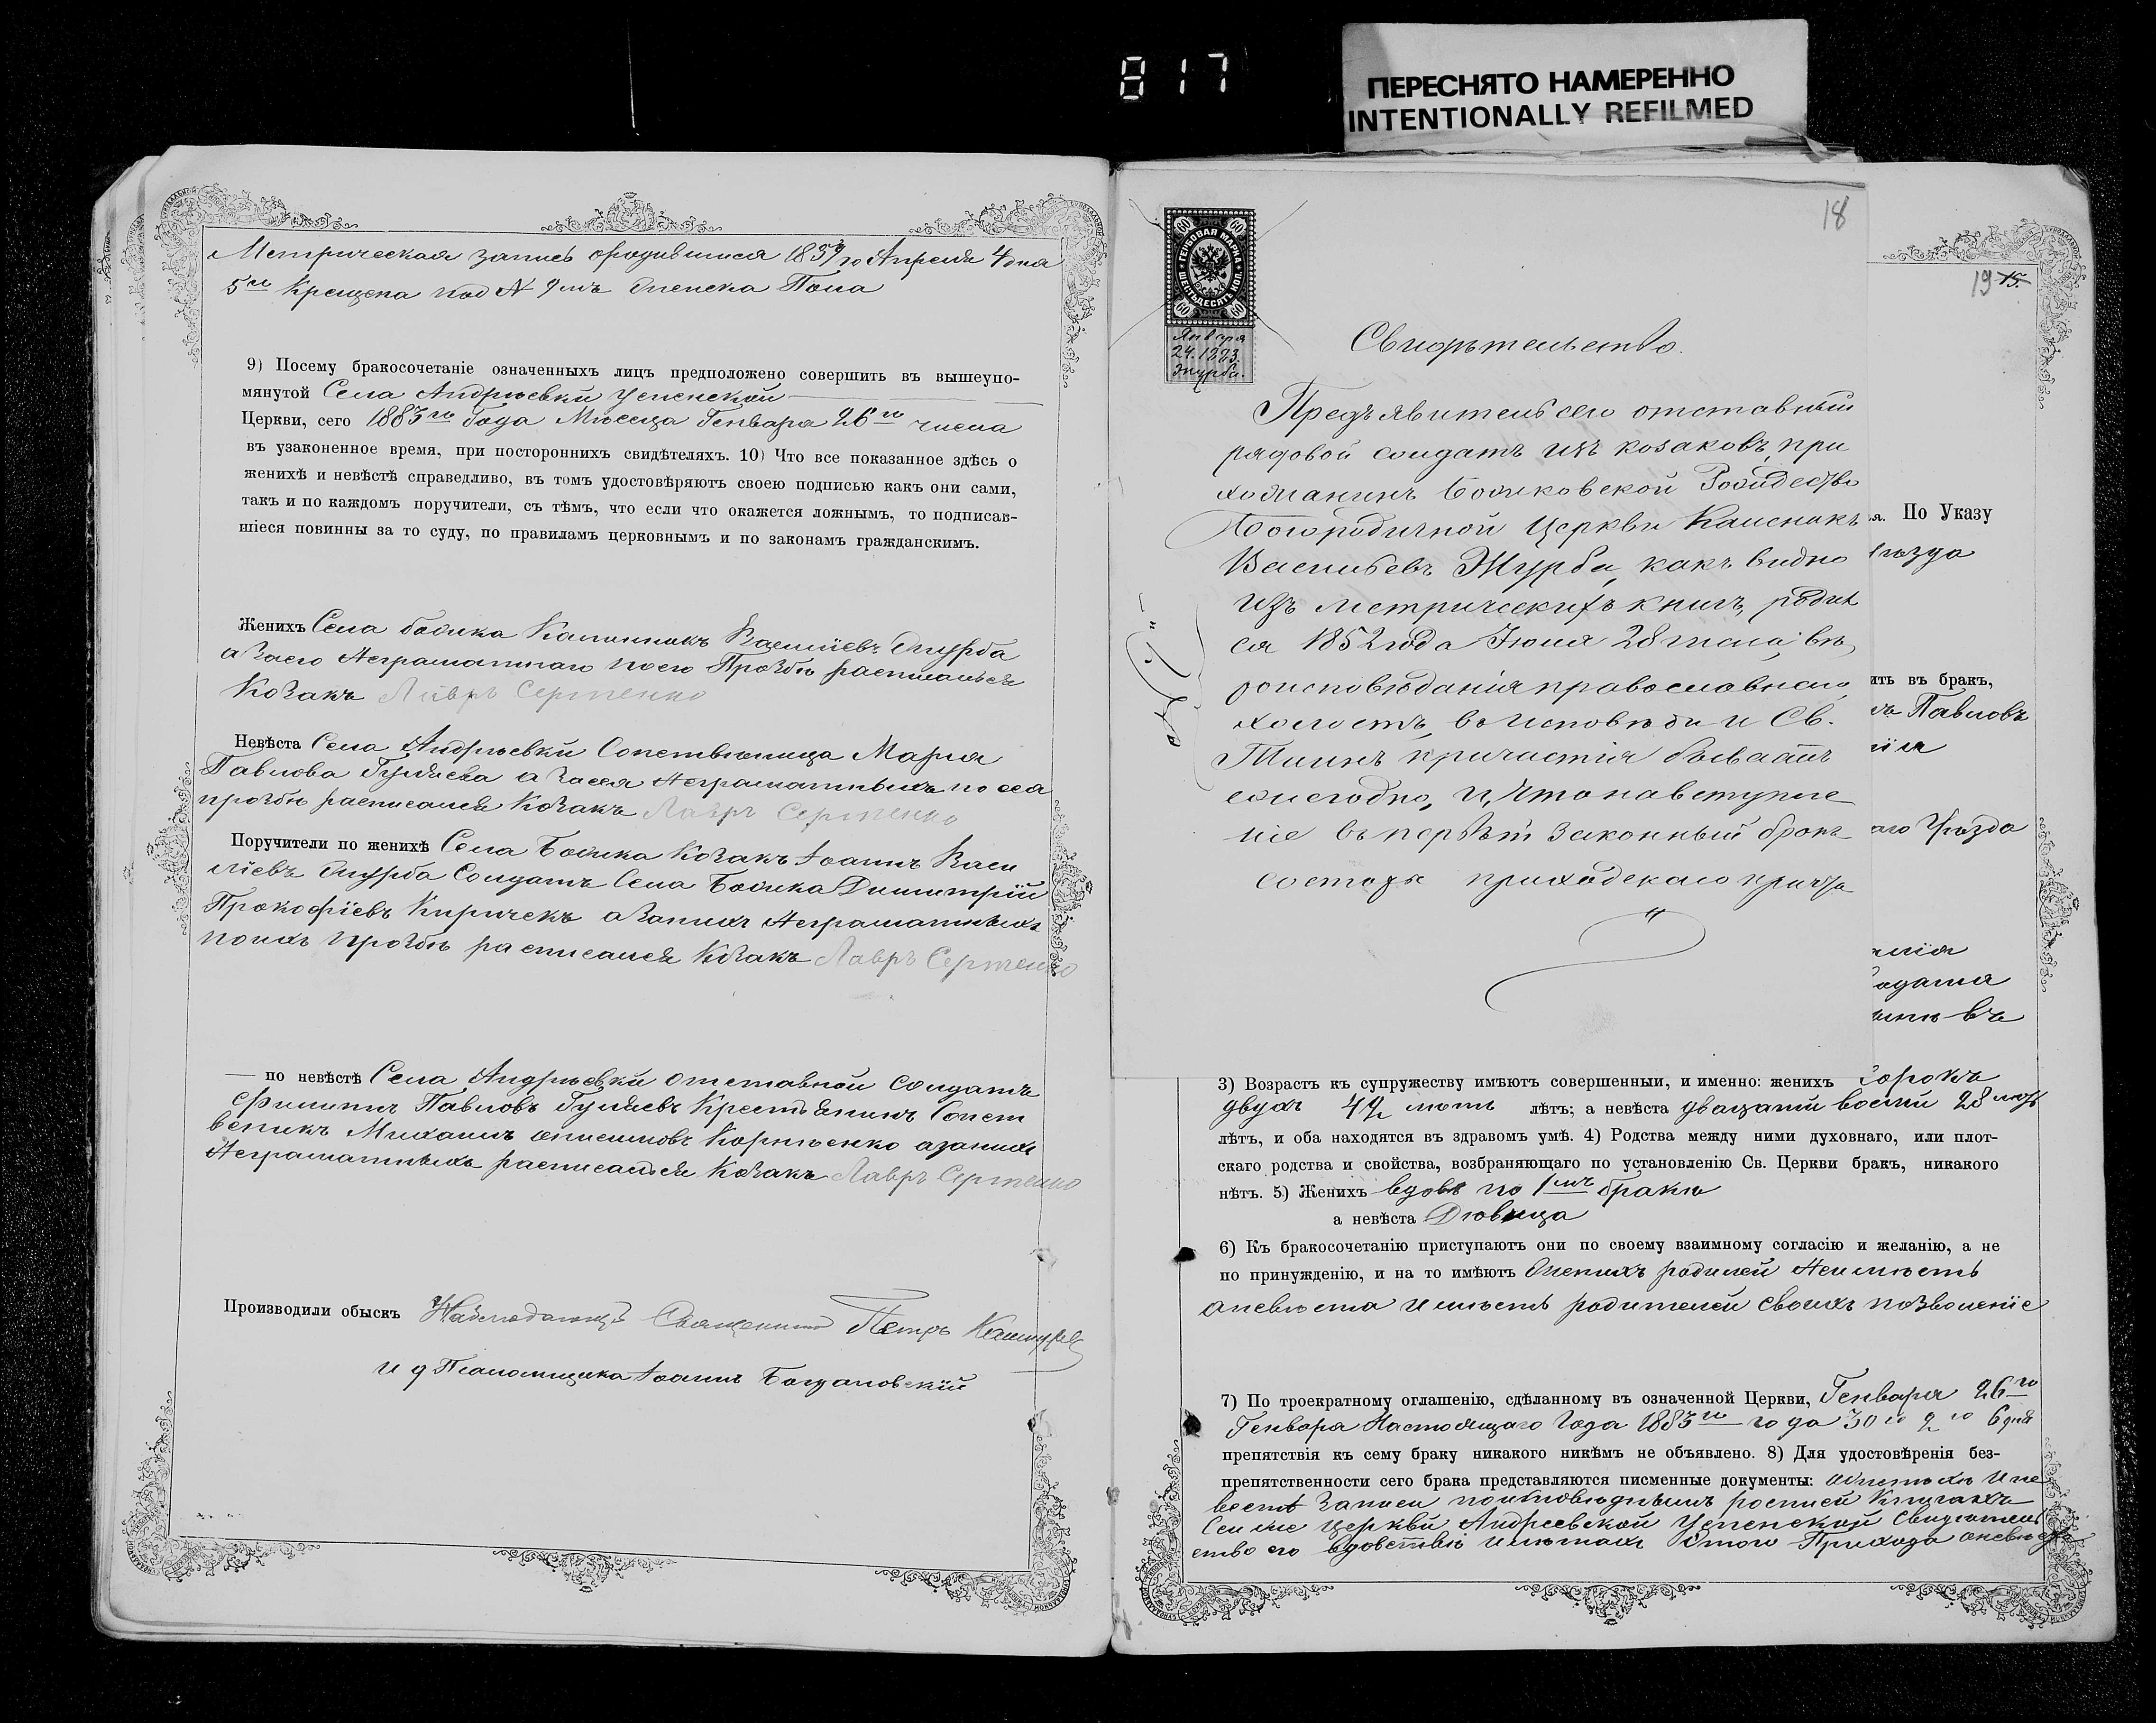 817
ПЕРЕСНЯТО НАМЕРЕННО
INTENTIONALLY REFILMED
Метрическая запись Апреля 4 дня
5го Крещена под № женска Пола
9) Посему бракосочетаніе означенныхъ лицъ предположено совершить въ вышеупо-
мянутой Села Андрѣевки Успенской
Церкви, сего 1883го Года Месеца Генваря 26го числа
въ узаконенное время, при постороннихъ свидѣтеляхъ. 10) Что все показанное здѣсь о
женихѣ и невѣстѣ справедливо, въ томъ удостовѣряютъ своею подписью какъ они сами,
такъ и по каждомъ поручители, съ тѣмъ, что если что окажется ложнымъ, то подписав-
шіеся повинны за то суду, по правиламъ церковнымъ и по законамъ гражданскимъ.
Женихъ Села Божка Калинникъ Василіевъ Журба
а заего Неграматнаго поего Прозбѣ расписался
Козакъ Лавръ Сергіенко
Невѣста Села Андрѣевки Мария
Павлова а занея Неграматныхъ по ея
прозбѣ расписался Козакъ Лавръ Сергіенко
Поручители по женихѣ Села Божка Козакъ Іоаннъ Васи
ліевъ Журба Солдатъ Села Божка Димитрій
Прокофіевъ Киричекъ а заних Неграматныхъ
поихъ прозбѣ расписался Козакъ Лавръ Сергіенко
по невѣстѣ Села Андрѣевки отставной солдатъ
Филиппъ Павловъ Крестьянинъ Собст
веникъ Михаилъ Корніенко азаних
Неграматныхъ расписался Козакъ Лавръ Сергіенко
Производили обыскъ Священникъ Петръ
И д Псаломщика Іоаннъ Богдановскій
18
ГЕРБОВАЯ МАРКА
ШЕСТЬДЕСЯТЪ КОП.
60 60
60 60
Января
24. 1883.
Журба.
Свидѣтельство.
Предъявитель сего отставный
рядовой солдатъ изъ козаковъ, при
хожанинъ Божковской Рождество
Богородичной Церкви Калиникъ
Васильевъ Журба, какъ видно
изъ метрическихъ книгъ, родил
ся 1852 года Іюля 28 числа, вѣ
роисповѣданія православнаго
холостъ, въ исповѣди и Св.
Таинъ причастія бываетъ
ежегодно, и, что на вступле
ніе въ первый законный бракъ
со стороны приходскаго причта
19 15.
ья. По Указу
ѣзда
ить въ бракъ,
Павловъ
аго Уѣзда
въ
3) Возрастъ къ супружеству имѣютъ совершенный, и именно: женихъ Сорокъ
двухъ 42 летъ лѣтъ; а невѣста двацати восми 28 летъ
лѣтъ, и оба находятся въ здравомъ умѣ. 4) Родства между ними духовнаго, или плот-
скаго родства и свойства, возбраняющаго по установленію Св. Церкви бракъ, никакого
нѣтъ. 5) Женихъ вдовъ по 1мъ бракѣ
а невѣста Дѣвица
6) Къ бракосочетанію приступаютъ они по своему взаимному согласію и желанію, а не
по принужденію, и на то имѣютъ Женихъ родилей Неимѣетъ
аневѣста имѣетъ родителей своихъ позволеніе
7) По троекратному оглашенію, сдѣланному въ означенной Церкви, Генваря 26го
Генваря Настоящаго Года 1883го года 30го 2го 6 дня
препятствія къ сему браку никакого никѣмъ не объявлено. 8) Для удостовѣренія без-
препятственности сего брака представляются писменные документы:
Записи росписей Книгахъ
Церкви Андреевской Успенской Свидѣтель
ство его вдовствѣ Прихода аневѣста